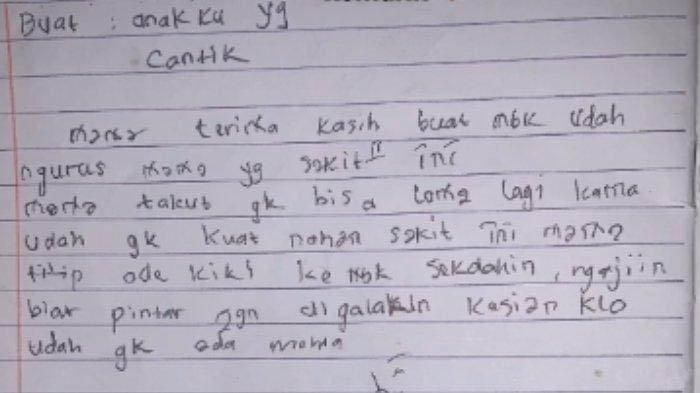 Buat : anakku yg
Cantik
mama terima kasih buat mbk udah
ngurus mama yg sakit" ini
mama takut gk bisa lama lagi karna
udah gk kuat nahan sakit ini mama
titip ade kiki ke mbk sekolahin, ngajiin
biar pintar jgn di galakin kasian klo
udah gk ada mama